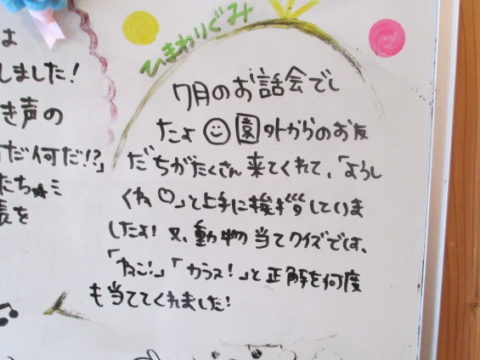 は
しました!
き声の
だ何だ!?」
たち★ミ
表を
ひまわりぐみ
7月のお話会でし
たよ☺園外からのお友
だちがたくさん来てくれて、「よろし
くね♡」と上手に挨拶していま
したよ!又、動物当てクイズでは、
「ねこ!」「カラス!」と正解を何度
も当ててくれました!